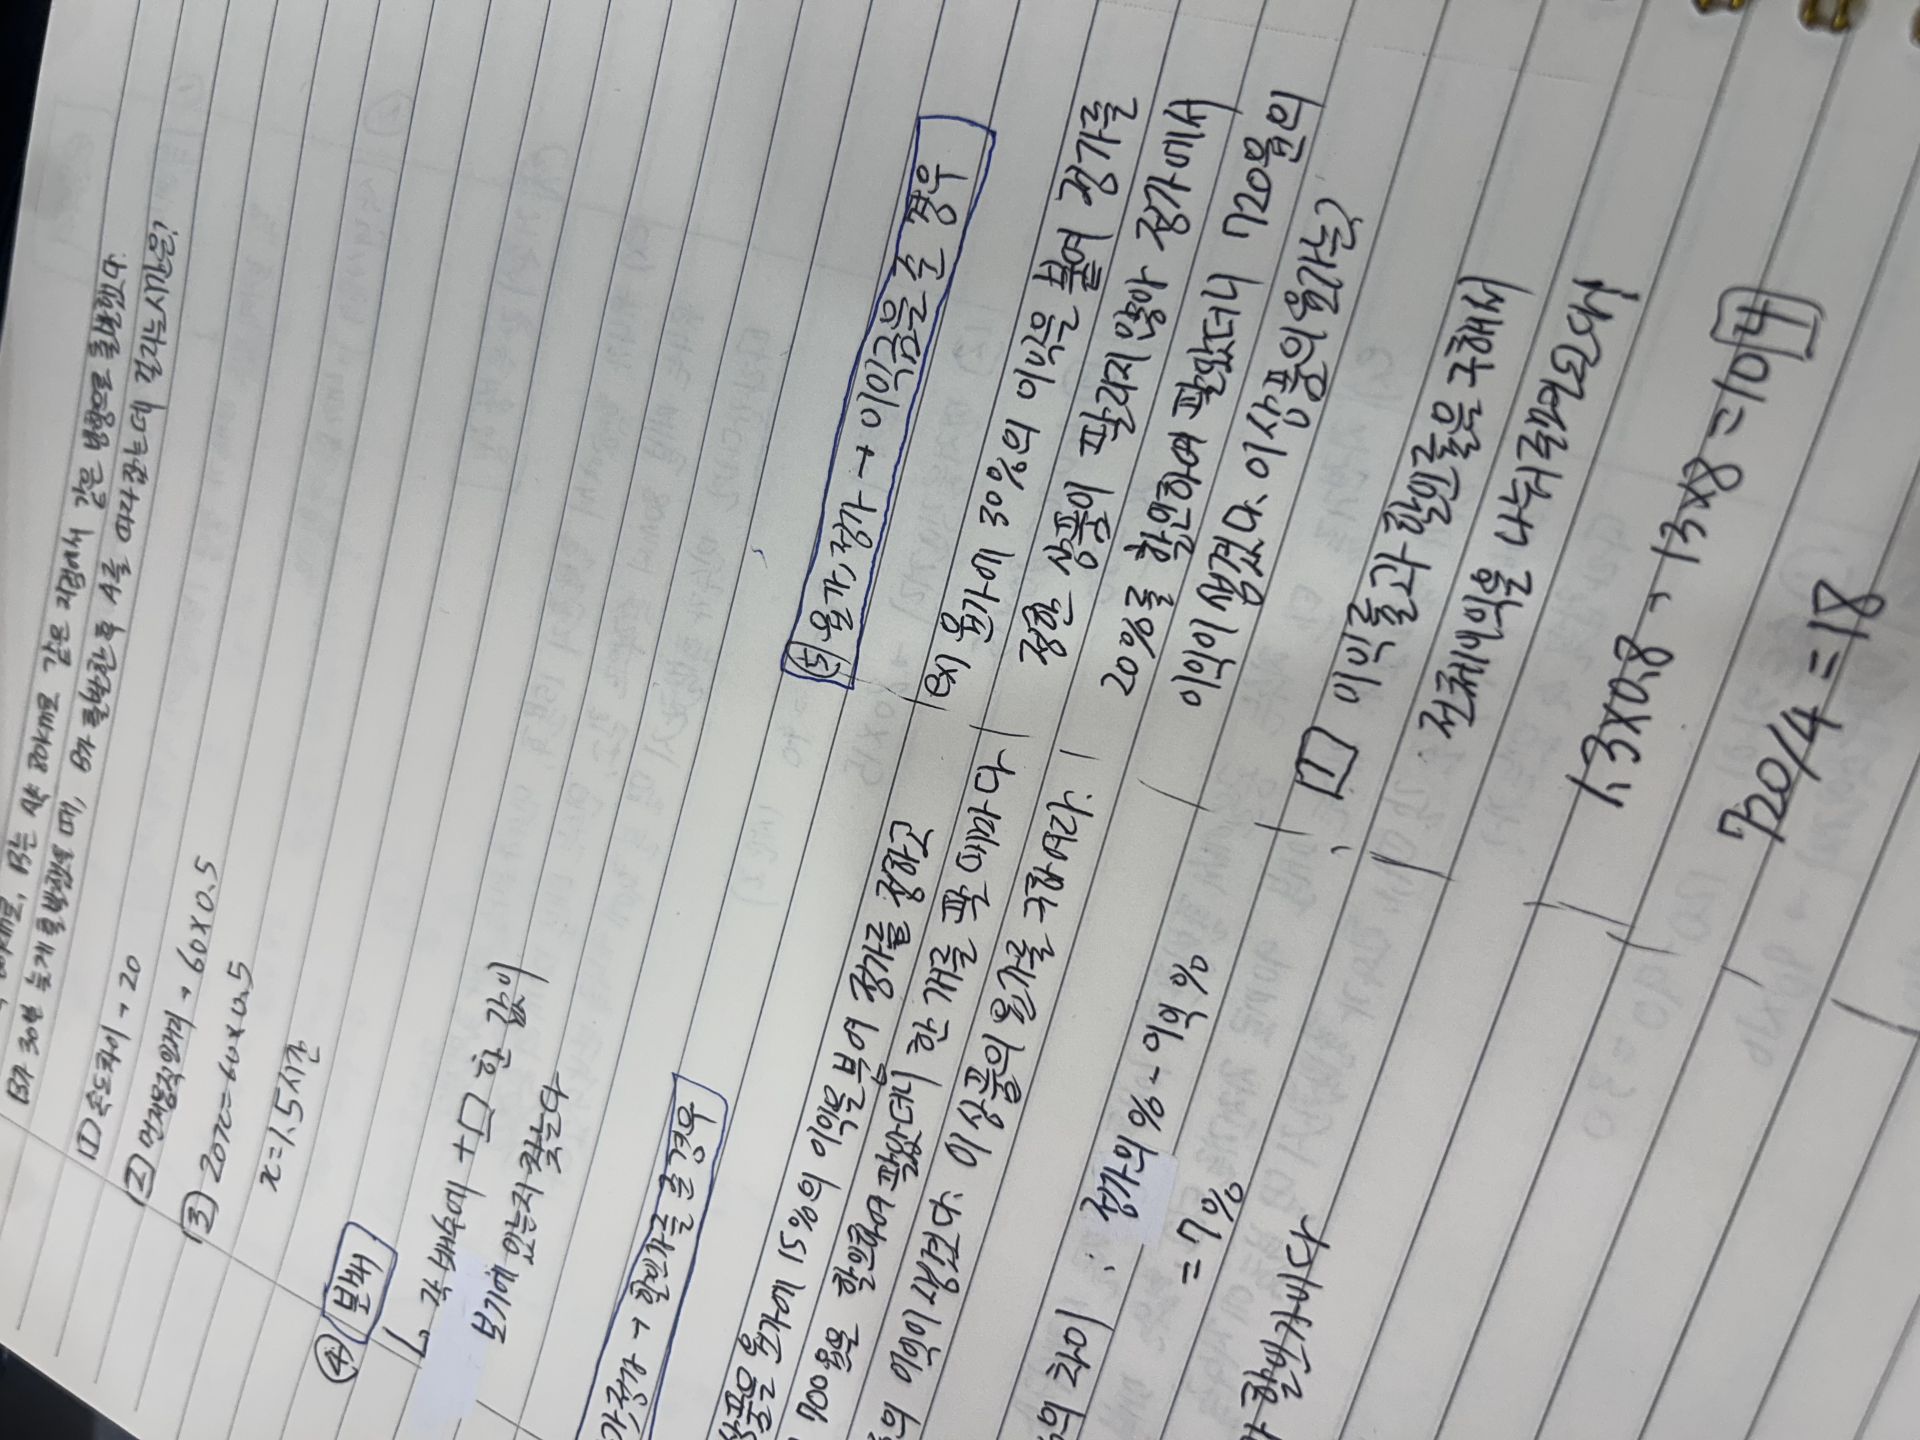 B는 시속 80km로 같은 지점에서 같은 방향으로 출발한다.
B가 30분 늦게 출발했을 때, B가 출발한 후 A를 따라잡는데 걸리는 시간은?
① 속도차이 → 20
② 먼저움직인거리 → 60×0.5
③ 20x=60×0.5
x=1.5시간
④ 분배
↳ 각 배수에 +□ 한 값이
보기에 있는지 찾는다
가,정가 → 할인가를 줄 경우
상품을 원가에 15%의 이익을 붙여 정가를 정하고
700원을 할인하여 팔았더니 한 개를 팔 때마다
의 이익이 생겼다. 이 상품의 원가를 구하여라.
의 차이 : 정가의 % - 이익 %
= 7%
할인가이다
⑤ 원가,정가 → 이익금을 줄 경우
예) 원가에 30%의 이익을 붙여 정가를
정한 상품이 팔리지 않아 정가에서
20%를 할인하여 팔았더니 720원의
이익이 생겼다. 이 상품의 원가는?
1 이익률과 할인률을 구해서
전체이익을 나눠주면된다
1.3×0.8 → 13×8=104
720/4=18